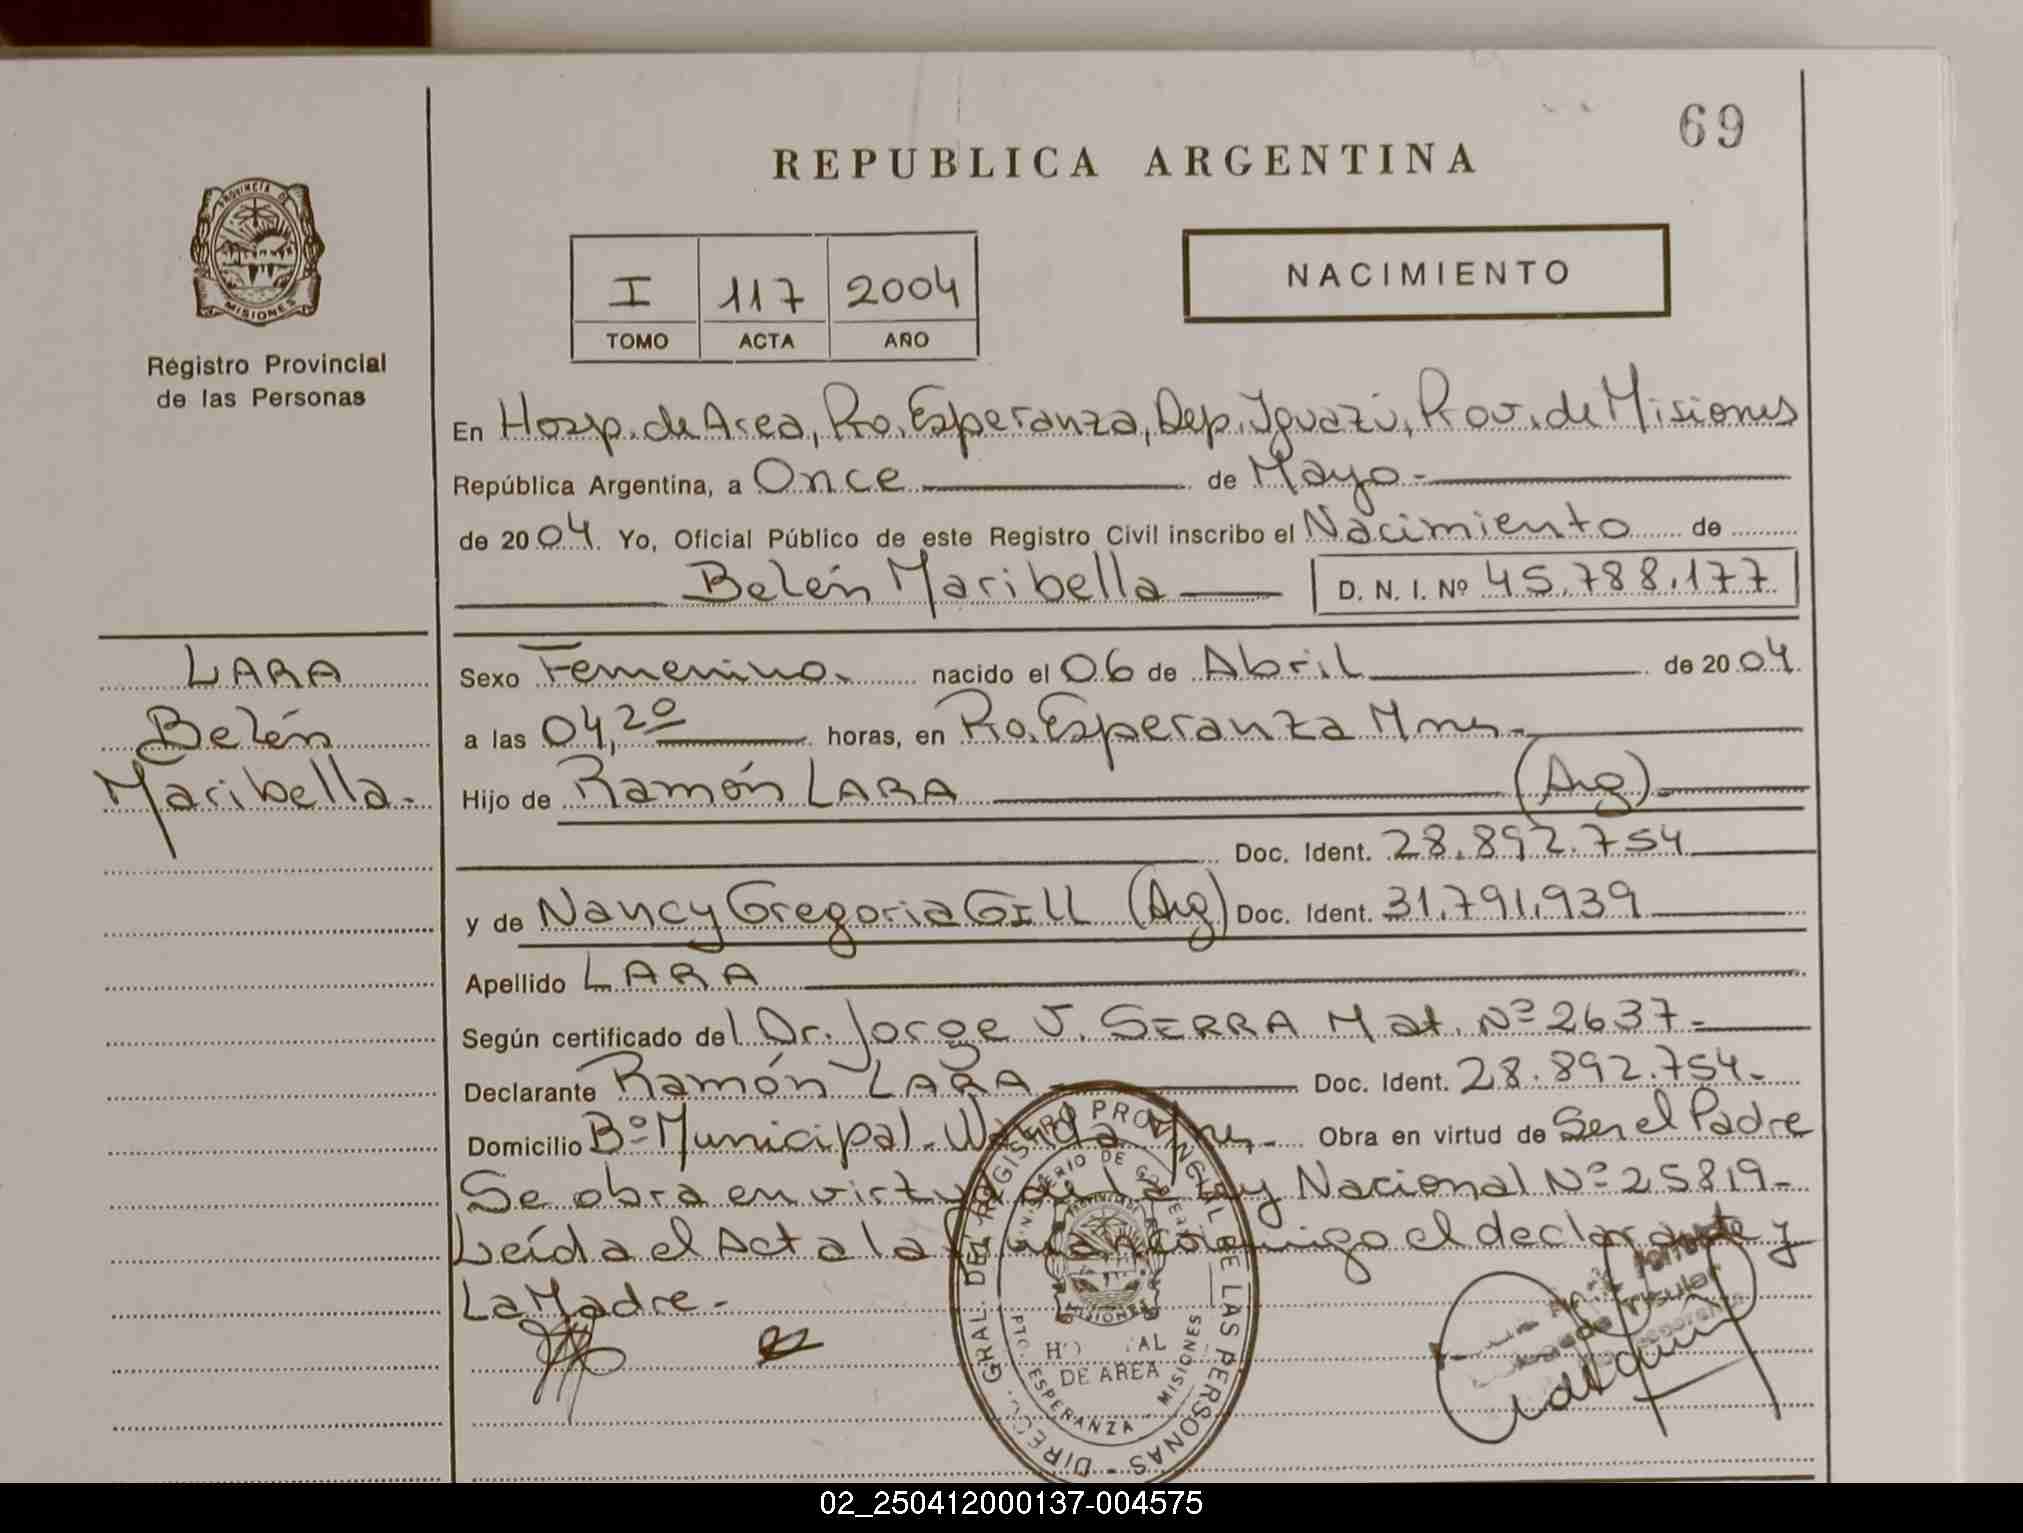 69
REPUBLICA ARGENTINA
PROVINCIA DE
MISIONES
Registro Provincial
de las Personas
I 117 2004
TOMO ACTA AÑO
NACIMIENTO
En Hosp. de Area, Pto. Esperanza, Dep. Iguazú, Prov. de Misiones
República Argentina, a Once de Mayo.-
de 2004. Yo, Oficial Público de este Registro Civil inscribo el Nacimiento de
Belén Maribella
D. N. I. Nº 45.788.177
LARA
Belén
Maribella.-
Sexo Femenino.- nacido el 06 de Abril de 2004.
a las 04,20 horas, en Pto. Esperanza Mnes.-
Hijo de Ramón LARA (Arg).-
Doc. Ident. 28.892.754
y de Nancy Gregoria GILL (Arg) Doc. Ident. 31.791.939
Apellido LARA
Según certificado del Dr. Jorge J. SERRA Mat. Nº 2637.-
Declarante Ramón LARA Doc. Ident. 28.892.754.-
Domicilio Bº Municipal - Wanda Mnes.- Obra en virtud de Ser el Padre
Se obra en virtud de la Ley Nacional Nº 25819.-
Leída el Acta la firman conmigo el declarante y
La Madre.-
DIRECC. GRAL. DEL REGISTRO PROVINCIAL DE LAS PERSONAS -
MINISTERIO DE
PROVINCIA DE
MISIONES
DE AREA
PTO. ESPERANZA - MISIONES
Titular
02_250412000137-004575